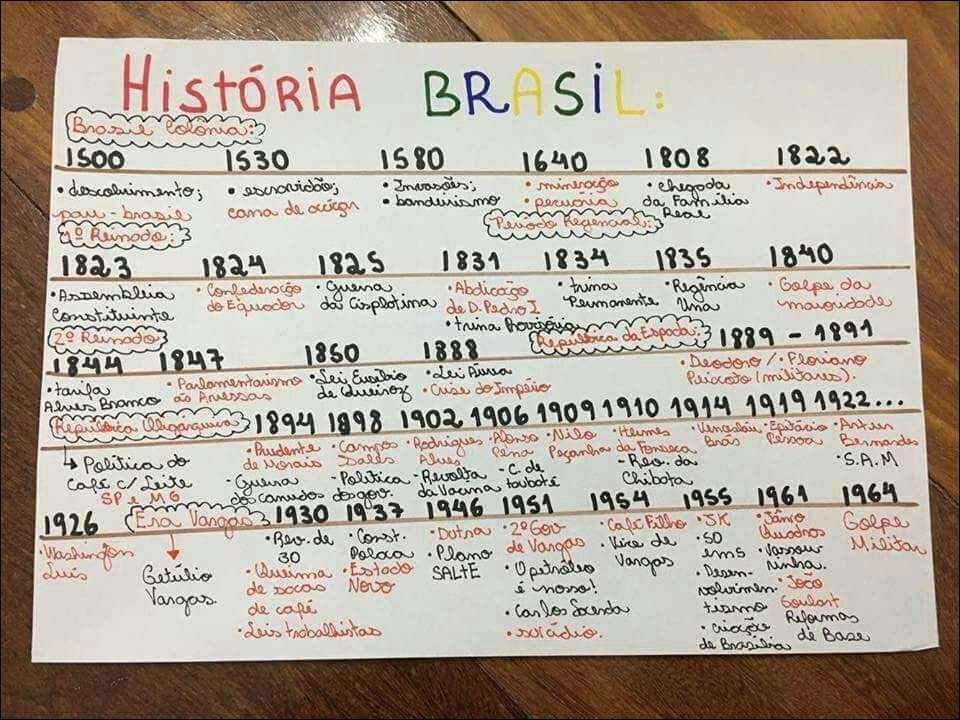 HISTÓRIA BRASIL:
Brasil Colônia:
1500 1530 1580 1640 1808 1822
• descobrimento; • escravidão; • Invasões; • mineração • chegada • Independência
pau-brasil cana de açúçar • bandeirismo • pecuária da Família
Real
1º Reinado: Período Regencial:
1823 1824 1825 1831 1834 1835 1840
• Assembleia • Confederação • Guerra • Abdicação • trina • Regência • Golpe da
Constituinte do Equador da Cisplatina de D. Pedro I Permanente Una maioridade
• trina Provisória
2º Reinado República da Espada: 1889 - 1891
1844 1847 1850 1888 • Deodoro / • Floriano
• tarifa • Parlamentarismo • Lei Eusébio • Lei Áurea Peixoto (militares).
Alves Branco às Avessas de Queiroz • Crise do Império
República Oligárquica 1894 1898 1902 1906 1909 1910 1914 1919 1922...
↳ Política do • Prudente • Campos • Rodrigues • Afonso • Nilo • Hermes • Venceslau • Epitácio • Artur
Café c/ Leite de Morais Salles Alves Pena Peçanha da Fonseca Brás Pessoa Bernardes
SP e MG • Guerra • Política • Revolta • C. de • Rev. da • S.A.M
de canudos dos gov. da Vacina taubaté Chibata
1926 Era Vargas 1930 1937 1946 1951 1954 1955 1961 1964
• Washington • Rev. de • Const. • Dutra • 2º Gov. • Café Filho • JK • Jânio Golpe
Luís 30 Polaca • Plano de Vargas • Vice de • 50 Quadros Militar
Getúlio • Queima • Estado SALTE • O petróleo Vargas em 5 • Vassou-
Vargas. de sacas Novo é nosso! • Desen- rinha.
de café • Carlos Lacerda volvimen- • João
• Leis trabalhistas • suicídio. tismo Goulart
• criação Reformas
de Brasília de Base